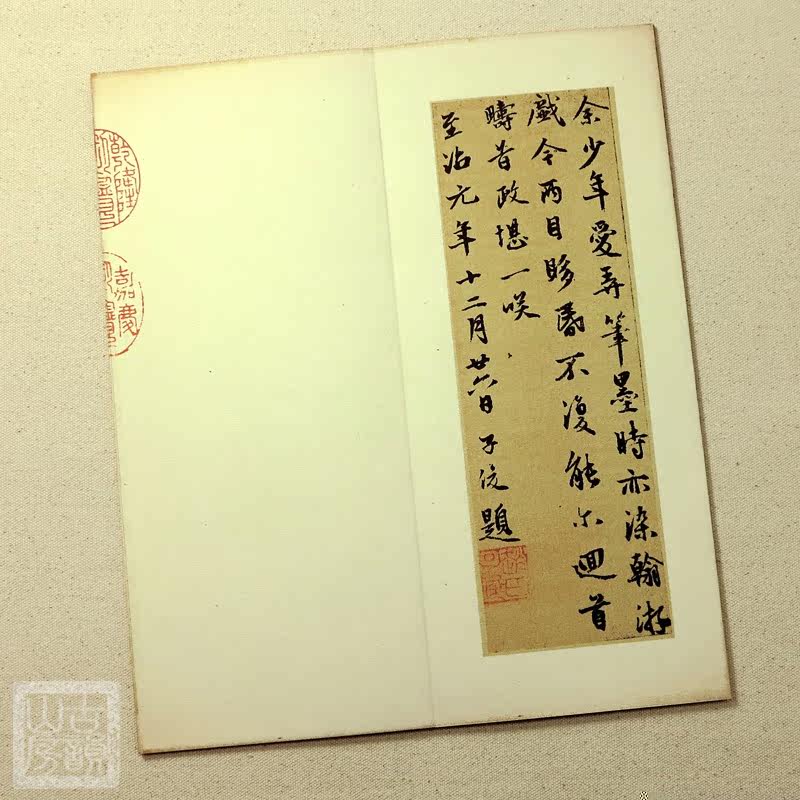 余少年愛弄筆墨時亦染翰游
戲今兩目眵昏不復能尒迴首
疇昔政堪一咲
至治元年十二月廿六日子俊題
趙氏
乾隆
嘉慶
古韻山房